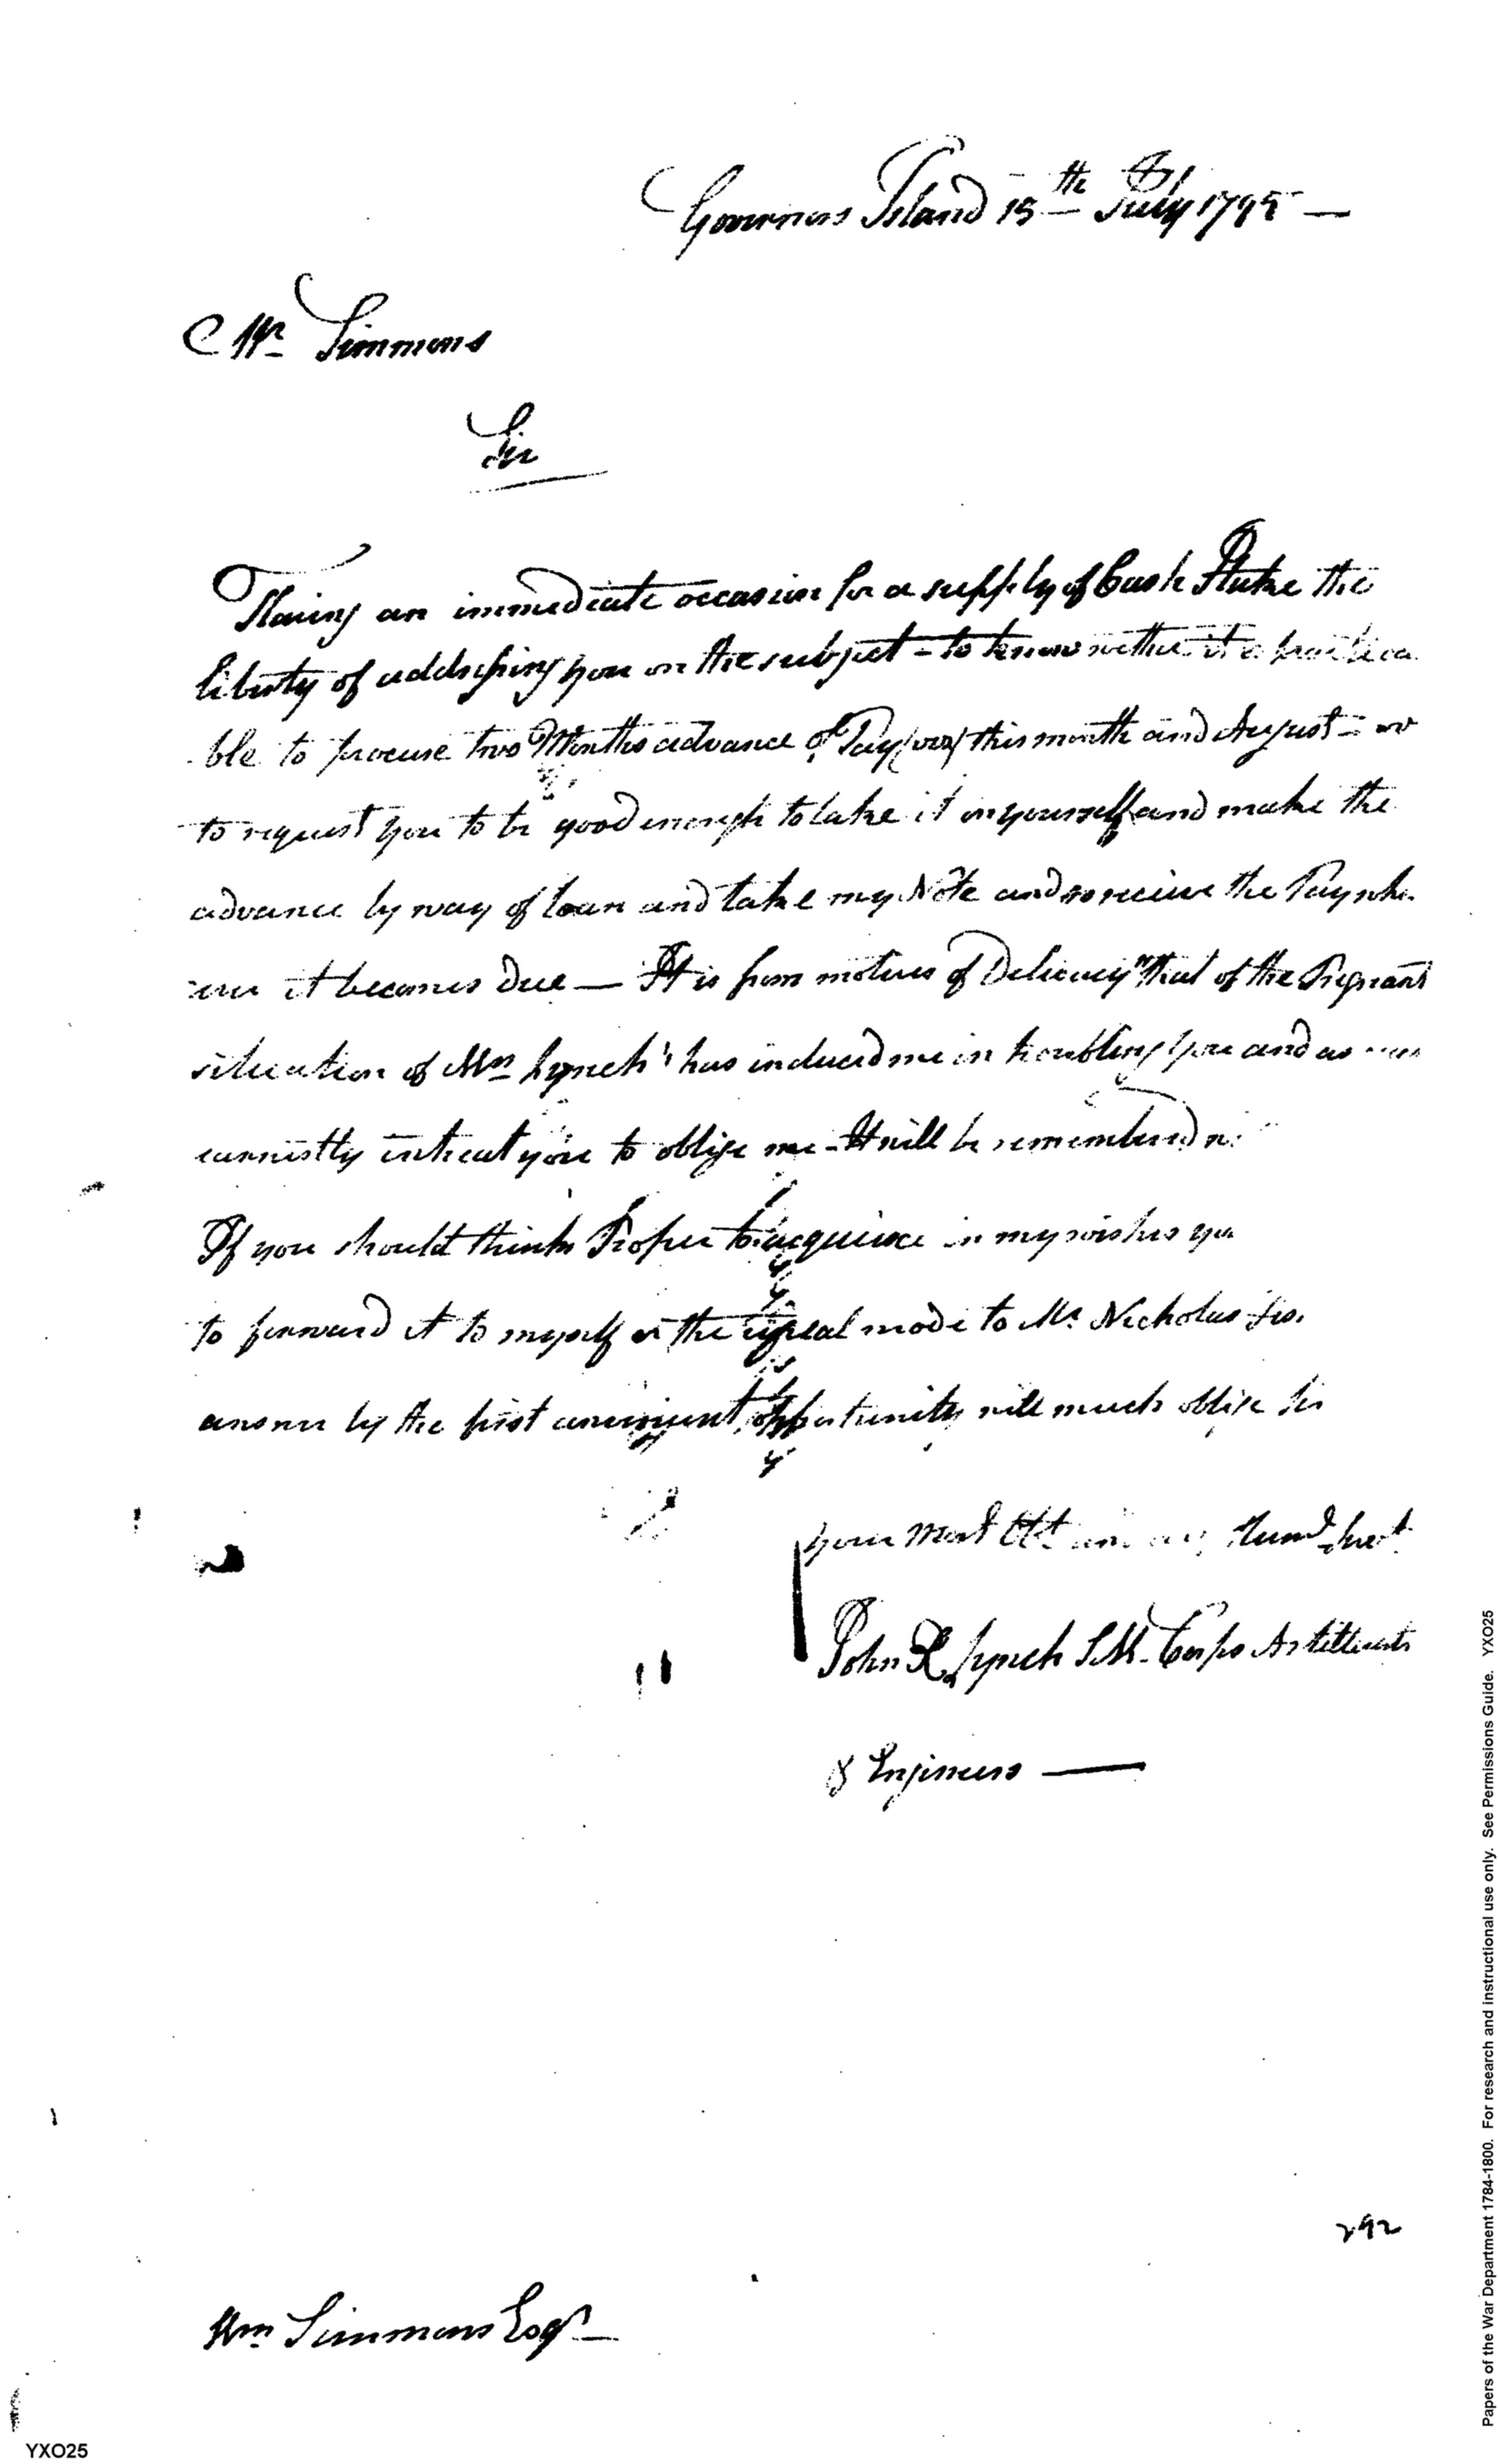 Governors Island 15th July 1795 —
Mr Simmons
Sir
Having an immediate occasion for a supply of Cash I take the
liberty of addressing you on the subject - to know wether it practica
ble to procure two Months advance of Pay (viz) this month and August - or
to request you to be good enough to take it on yourself and make the
advance by way of loan and take my Note and so receive the Pay whe
it becomes Due — It is from motives of Delicacy "that of the Pregnant
situation of Mrs Lynch" has induced me in troubling you and as
earnestly intreat you to oblige me - It will be remembered
If you should think Proper to acquiesce in my wishes you
to forward it to myself or the usual mode to Mr Nicholas
answer by the first convenient opportunity will much oblige Sir
your Most Obt Humb Servt
John R Lynch S.M. Corps Artillerists
& Engineers —
292
Wm Simmons Esqr
YXO25
Papers of the War Department 1784-1800. For research and instructional use only. See Permissions Guide. YXO25